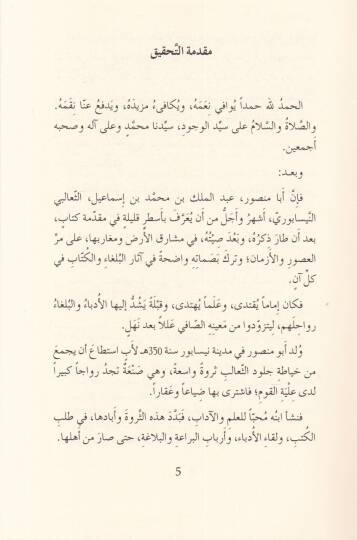 مقدمة التَّحقيق
الحمدُ لله حمداً يُوافي نِعَمَهُ، ويُكافىءُ مزيدَهُ، ويَدفعُ عنّا نِقَمَهُ.
والصَّلاةُ والسَّلامُ على سيِّد الوجودِ، سيِّدنا محمَّدٍ وعلى آله وصحبه
أجمعين.
وبعـد:
فإنَّ أبا منصور، عبد الملك بن محمَّد بن إسماعيل، الثّعالبي
النَّيسابوريّ، أشهرُ وأجَلُّ من أن يُعَرَّفَ بأسطرٍ قليلةٍ في مقدّمة كتابٍ،
بعد أن طارَ ذِكرُهُ، وبَعُدَ صِيْتُهُ، في مشارق الأرض ومغاربها، على مرِّ
العصور والأزمان؛ وتركَ بَصَماتِهِ واضحةً في آثار البُلغاءِ والكُتّاب في
كلّ آنٍ.
فكان إماماً يُقتدى، وعَلَماً يُهتدى، وقبْلَةً يَشُدُّ إليها الأدباءُ والبُلغاءُ
رواحِلَهم، لِيتزوّدوا من مَعينِه الصَّافي عَللاً بعد نَهَلٍ.
وُلد أبو منصور في مدينة نيسابور سنة 350هـ لأبٍ استطاعَ أن يجمعَ
من خياطةِ جلود الثّعالبِ ثروةً واسعة، وهي صَنْعَةٌ تجدُ رواجاً كبيراً
لدى عِلْيَةِ القوم؛ فاشترى بها ضِياعاً وعَقاراً.
فنشأ ابنُه مُحبّاً للعلم والآداب، فَبَدَّدَ هذه الثَّروةَ وأبادها، في طلبِ
الكُتبِ، ولقاءِ الأُدباء، وأربابِ البراعةِ والبلاغةِ، حتى صارَ من أهلها.
5